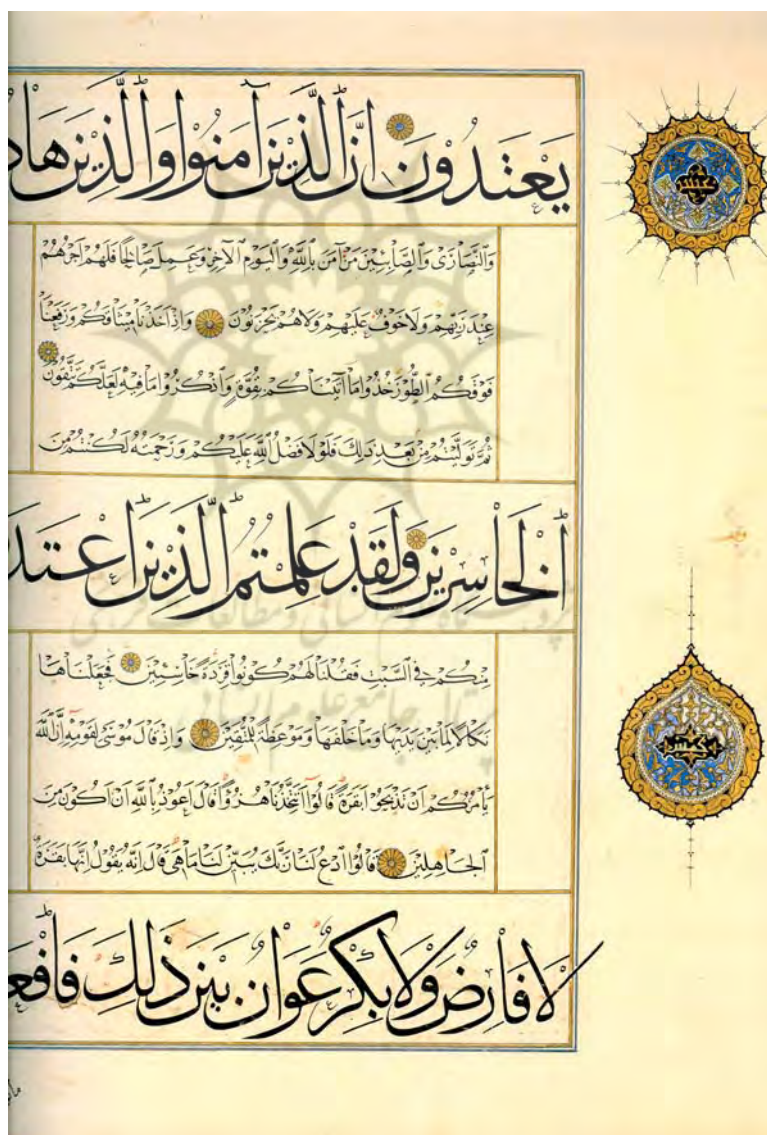 يَعْتَدُونَ اِنَّ الَّذِيْنَ آمَنُوْا وَالَّذِيْنَ هَاد
وَالنَّصَارَى وَالصَّابِئِيْنَ مَنْ آمَنَ بِاللّٰهِ وَالْيَوْمِ الْآخِرِ وَعَمِلَ صَالِحًا فَلَهُمْ اَجْرُهُمْ
عِنْدَ رَبِّهِمْ وَلَا خَوْفٌ عَلَيْهِمْ وَلَا هُمْ يَحْزَنُوْنَ وَاِذْ اَخَذْنَا مِيْثَاقَكُمْ وَرَفَعْنَا
فَوْقَكُمُ الطُّوْرَ خُذُوْا مَا آتَيْنَاكُمْ بِقُوَّةٍ وَاذْكُرُوْا مَا فِيْهِ لَعَلَّكُمْ تَتَّقُوْنَ
ثُمَّ تَوَلَّيْتُمْ مِنْ بَعْدِ ذٰلِكَ فَلَوْلَا فَضْلُ اللّٰهِ عَلَيْكُمْ وَرَحْمَتُهُ لَكُنْتُمْ مِنَ
الْخَاسِرِيْنَ وَلَقَدْ عَلِمْتُمُ الَّذِيْنَ اعْتَد
مِنْكُمْ فِي السَّبْتِ فَقُلْنَا لَهُمْ كُوْنُوْا قِرَدَةً خَاسِئِيْنَ فَجَعَلْنَاهَا
نَكَالًا لِمَا بَيْنَ يَدَيْهَا وَمَا خَلْفَهَا وَمَوْعِظَةً لِلْمُتَّقِيْنَ وَاِذْ قَالَ مُوْسَى لِقَوْمِهِ اِنَّ اللّٰهَ
يَأْمُرُكُمْ اَنْ تَذْبَحُوْا بَقَرَةً قَالُوْا اَتَتَّخِذُنَا هُزُوًا قَالَ اَعُوْذُ بِاللّٰهِ اَنْ اَكُوْنَ مِنَ
الْجَاهِلِيْنَ قَالُوا ادْعُ لَنَا رَبَّكَ يُبَيِّنْ لَنَا مَا هِيَ قَالَ اِنَّهُ يَقُوْلُ اِنَّهَا بَقَرَةٌ
لَا فَارِضٌ وَلَا بِكْرٌ عَوَانٌ بَيْنَ ذٰلِكَ فَافْع
پژوهشگاه علوم انسانی و مطالعات فرهنگی
پرتال جامع علوم انسانی